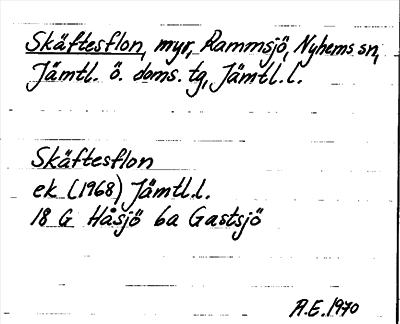 Skäftesflon, myr, Rammsjö, Nyhems sn,
Jämtl. ö. doms. tg, Jämtl. l.
Skäftesflon
ek (1968) Jämtl.l.
18 G Håsjö 6a Gastsjö
A.E. 1970